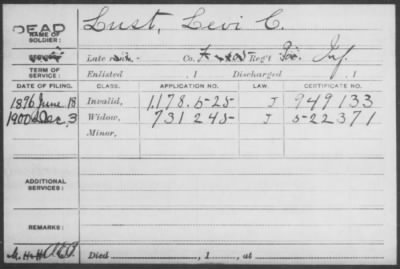 DEAD
NAME OF SOLDIER: Lust, Levi C.
Late Co. Reg't Inf.
TERM OF SERVICE: Enlisted , 1 Discharged , 1
DATE OF FILING. CLASS. APPLICATION NO. LAW. CERTIFICATE NO.
1896 June 18 Invalid, 1.178.525 J 949133
1900 Dec. 3 Widow, 731245 J 522371
Minor,
ADDITIONAL SERVICES:
REMARKS:
Died , 1 , at